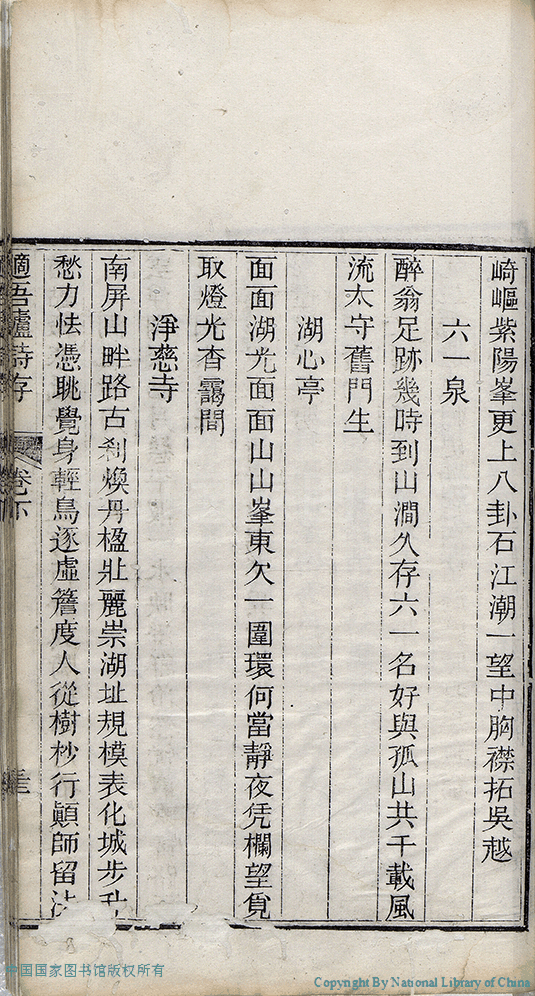 崎嶇紫陽峯更上八卦石江潮一望中胸襟拓吳越
六一泉
醉翁足跡幾時到山澗久存六一名好與孤山共千載風
流太守舊門生
湖心亭
面面湖光面面山山峯東欠一圍環何當靜夜凭欄望覓
取燈光杳靄間
淨慈寺
南屏山畔路古刹煥丹楹壯麗崇湖址規模表化城步
愁力怯憑眺覺身輕鳥逐虛簷度人從樹杪行顚師留法
適吾廬詩存 卷下
中国国家图书馆版权所有
Copyright By National Library of China